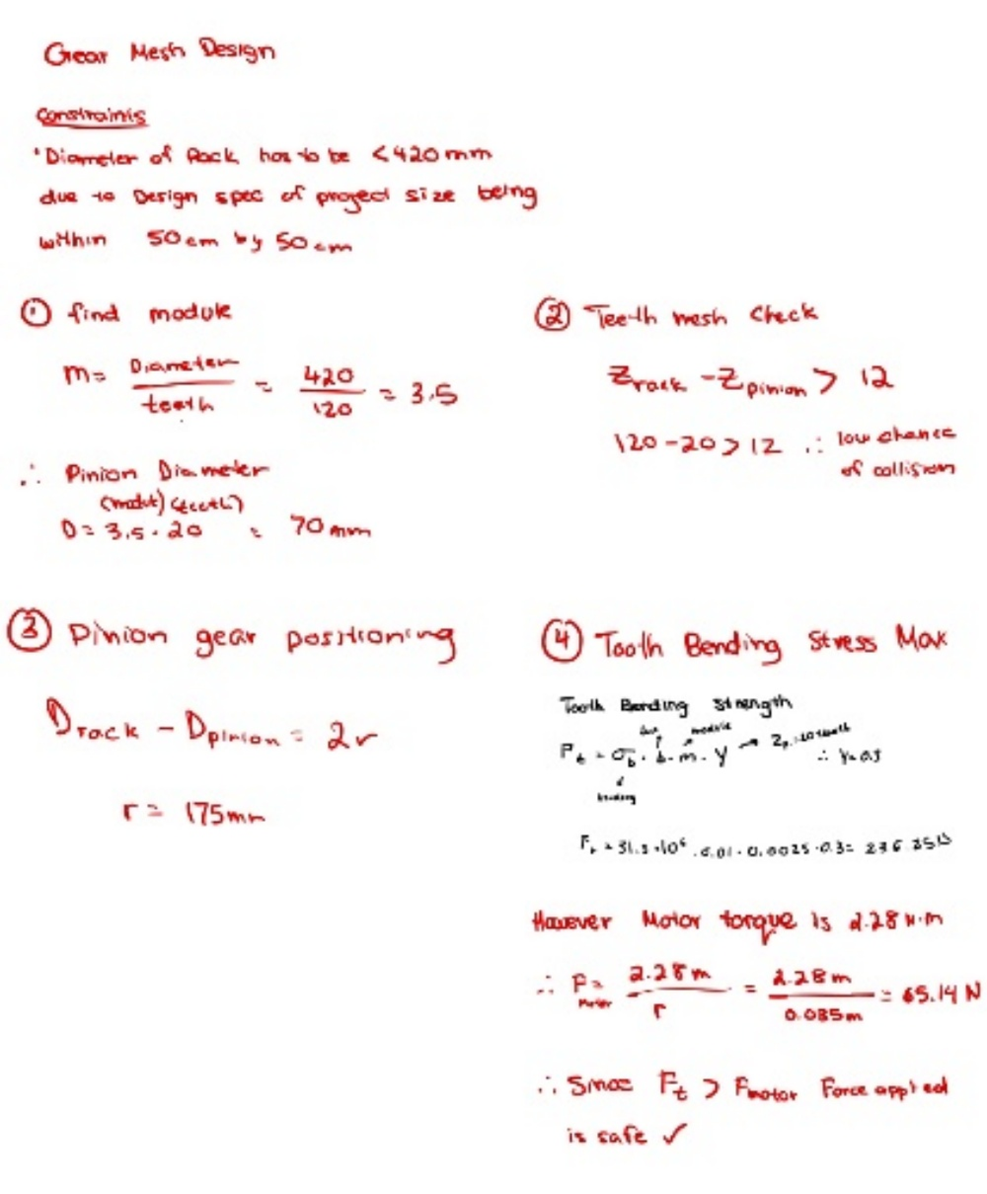 Gear Mesh Design
Constraints
• Diameter of Rack has to be <420mm
due to Design spec of project size being
within 50cm by 50cm
① find module
m= Diameter / teeth = 420 / 120 = 3.5
∴ Pinion Diameter
(module) (teeth)
D = 3.5 · 20 = 70mm
② Teeth mesh Check
Zrack - Zpinion > 12
120 - 20 > 12 ∴ low chance
of collision
③ Pinion gear positioning
Drack - Dpinion = 2r
r = 175mm
④ Tooth Bending Stress Max
Tooth Bending Strength
module
Ft = σb · b · m · Y → Zp = 20 teeth
∴ Y = 0.3
bending
Ft = 31.5 ·10⁶ · 0.01 · 0.0025 · 0.3 = 236.25N
However Motor torque is 2.28 N·m
∴ Fmotor = 2.28m / r = 2.28m / 0.035m = 65.14 N
∴ Since Ft > Fmotor Force applied
is safe ✓